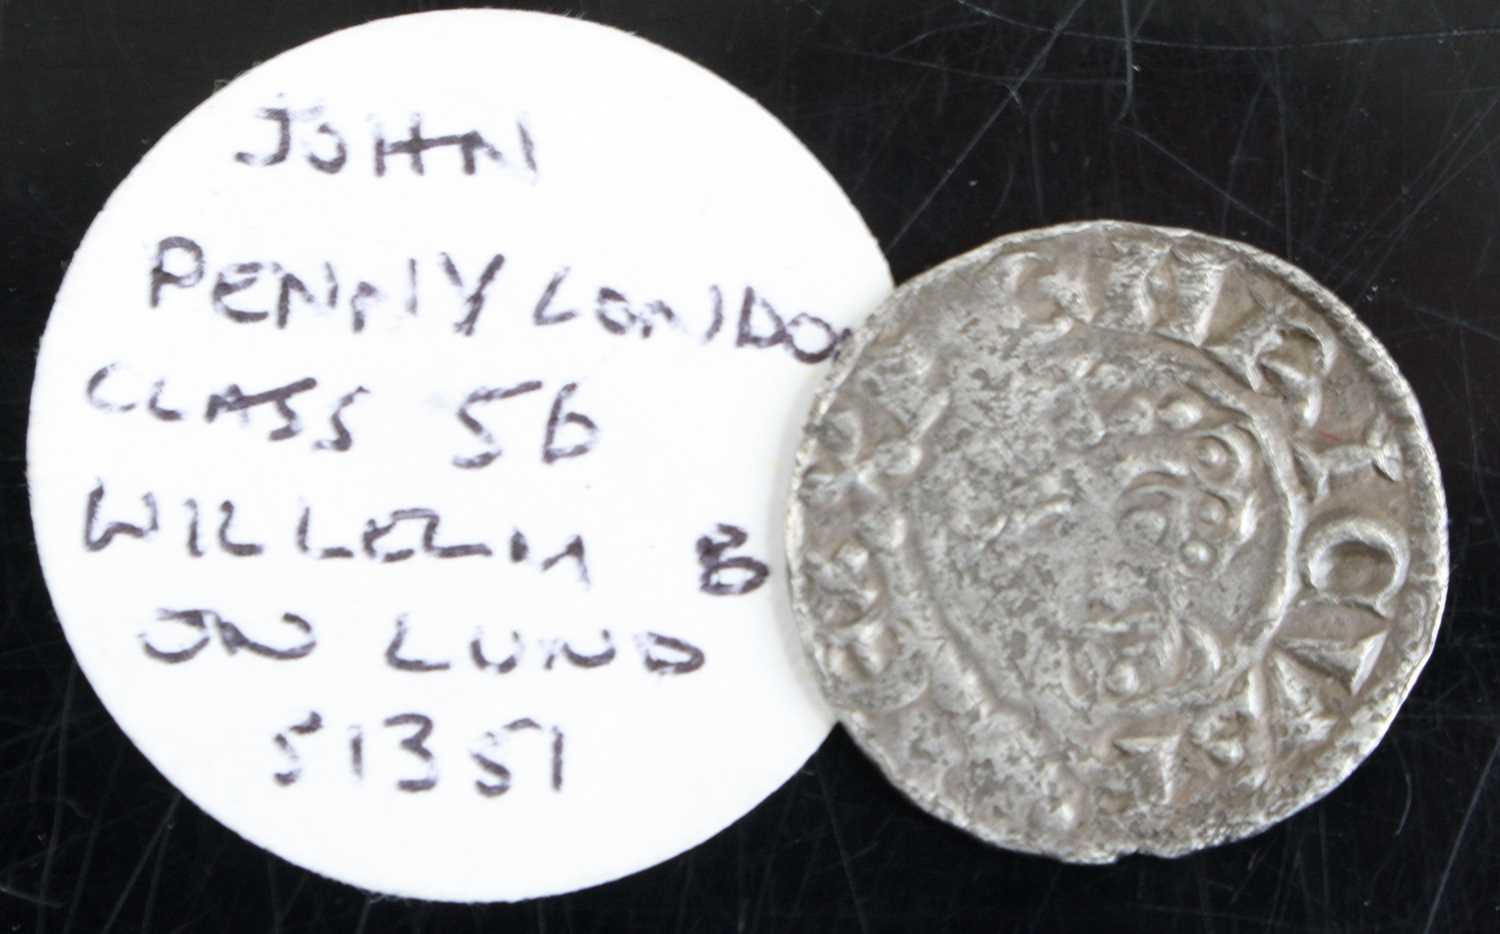 JOHN
PENNY LONDON
CLASS 5b
WILLELM B
ON LUND
S1351
hENRICVS R